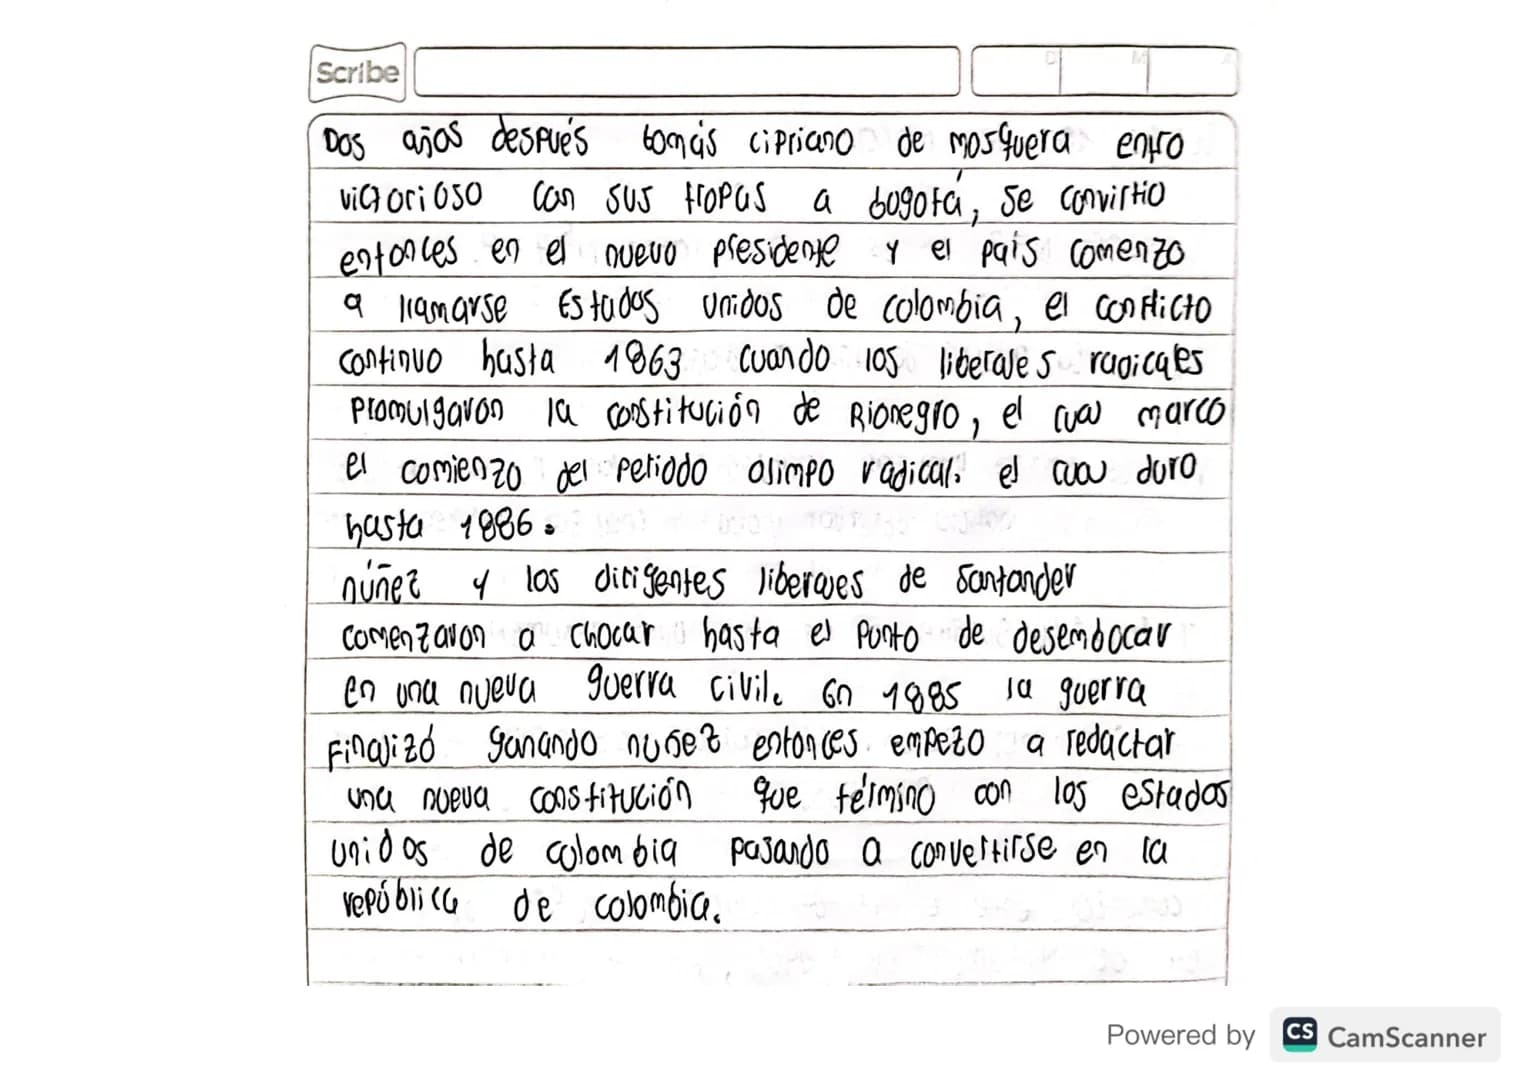 Scribe
D M A
Dos años después tomás cipriano de mosquera entro
victorioso con sus tropas a bogotá, se convirtió
entonces en el nuevo presidente y el país comenzo
a llamarse Estados unidos de colombia, el conflicto
continuo hasta 1863 cuando los liberales radicales
promulgaron la constitución de Rionegro, el cual marco
el comienzo del periodo olimpo radical. el cual duro
hasta 1886.
núñez y los dirigentes liberales de Santander
comenzaron a chocar hasta el punto de desembocar
en una nueva guerra civil. En 1885 la guerra
Finalizó ganando nuñez entonces empezo a redactar
una nueva constitución que término con los estados
unidos de colombia pasando a convertirse en la
república de colombia.
Powered by CS CamScanner